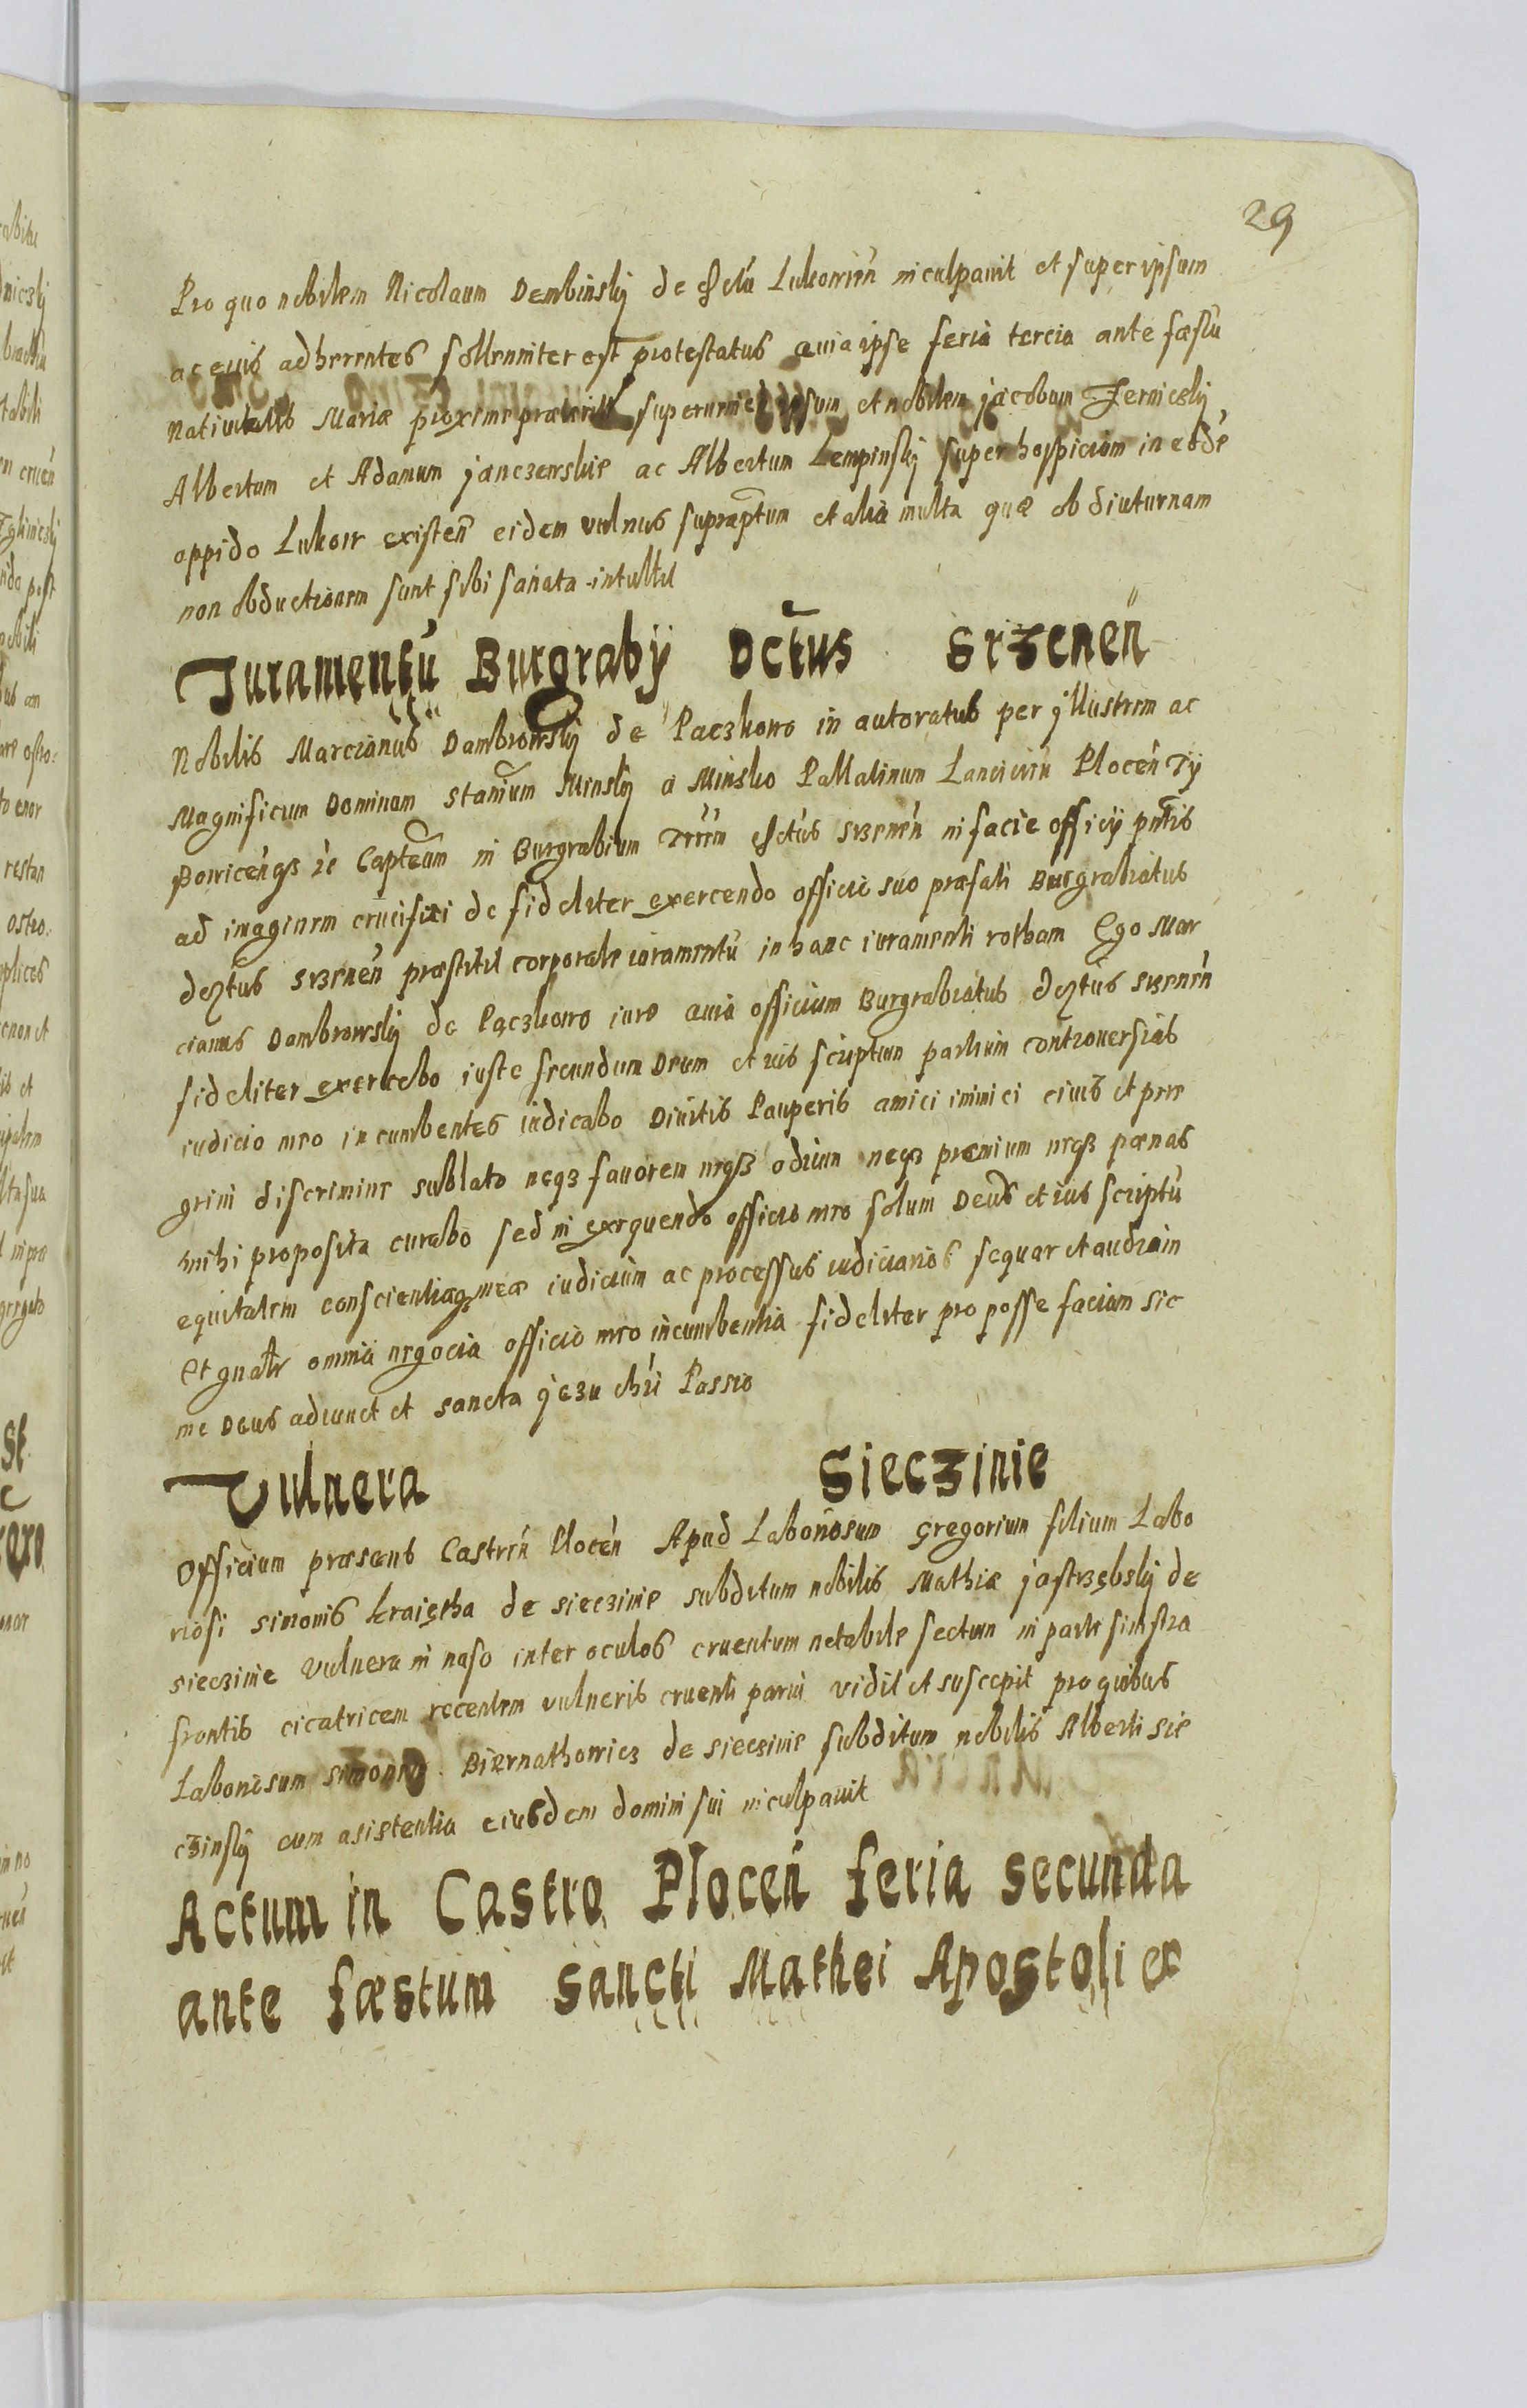 29
Pro quo nobilem Nicolaum Dembinsky de Lukowien inculpauit et super ipsum
ac eius adherentes sollenniter est protestatus quia ipse feria tercia ante fæstū
Natiuitatis Mariæ proxime præterit et nobilem jacobum
Albertum et Adamum janczewskie ac Albertum Lempinsky super hospicium in eodē
oppido Lukow existeñ eidem vulnus supraptum et alia multa quæ ob diuturnam
non obductionem sunt sibi sanata intullit
Juramentū Burgrabÿ Dctus Srzeneñ
Nobilis Marcianus Dambrowsky de Paczkowo in autoratus per jllustrem ac
Magnificum Dominum Stanūm Minsky a Minsko Pallatinum Lancicień Plocéń
Capteum in Burgrabium srzenéń in facie officij pntis
ad imaginem crucifixi de fideliter exercendo officio suo præfati Burgrabiatus
srzenéń præstitit corporale iuramentū in hanc iuramenti rotham Ego Mar
cianus Dambrowsky de Pączkowo iuro quia officium Burgrabiatus srzenéń
fideliter exercebo iuste secundum Deum et ius scriptum partium controuersias
iudicio meo incumbentes iudicabo Diuitis Pauperis amici inimici ciuis et pere
grini discrimine sublato neqz fauorem neqz odium neqz præmium neqz pænas
mihi proposita curabo sed in exequendo officio meo solum Deus et ius scriptū
equitatem conscientiæqz meæ iudicium ac processus iudiciarios sequar et audiam
Et gnatr omnia negocia officio meo incumbentia fideliter pro posse faciam sic
me Deus adiuuet et sancta jezu chri Passio
Vulnera Sieczinie
Officium præsens Castreń Plocéń Apud Laboriosum Gregorium filium Labo
riosi simonis kraiętha de sieczinie subditum nobilis Mathiæ jastrzębsky de
sieczinie vulnera in naso inter oculos cruentum notabile sectum in parte sinistra
frontis cicatricem recentem vulneris cruenti parui vidit et suscepit pro quibus
Laboriosum Biernathowicz de sieczinie subditum nobilis Alberti sie
czinsky cum asistentia eiusdem domini sui inculpauit
Actum in Castro Plocéń feria secunda
ante fæstum Sancti Mathei Apostoli et